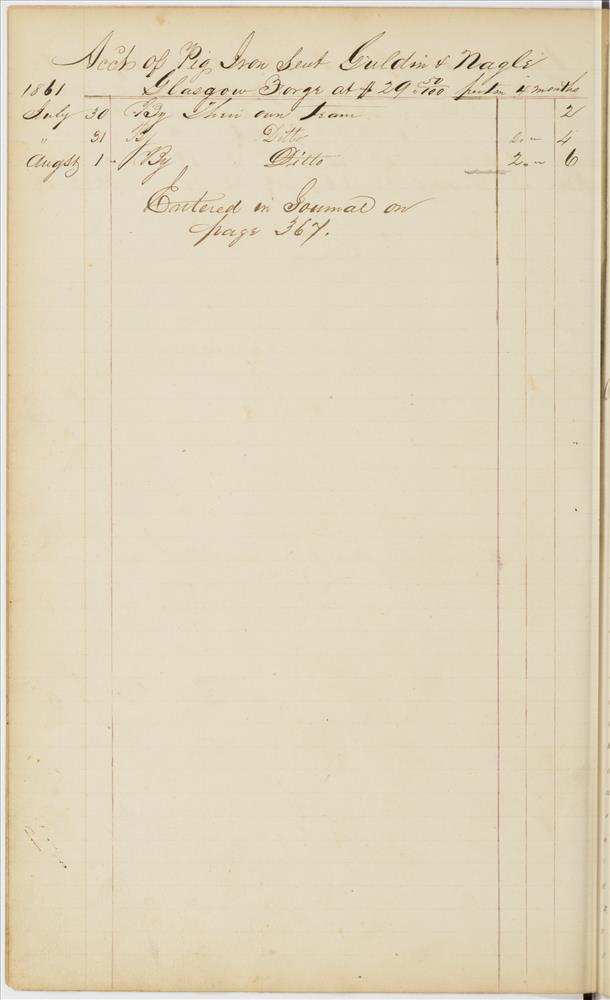 Acct of Pig Iron Sent Guldin & Nagle
1861 Glasgow Forge at $ 29 50/100 per ton 4 months
July 30 By Their own team 2
" 31 By Ditto 2 " " 4
Augst 1 By Ditto 2 " " 6
Entered in Journal on
page 367.